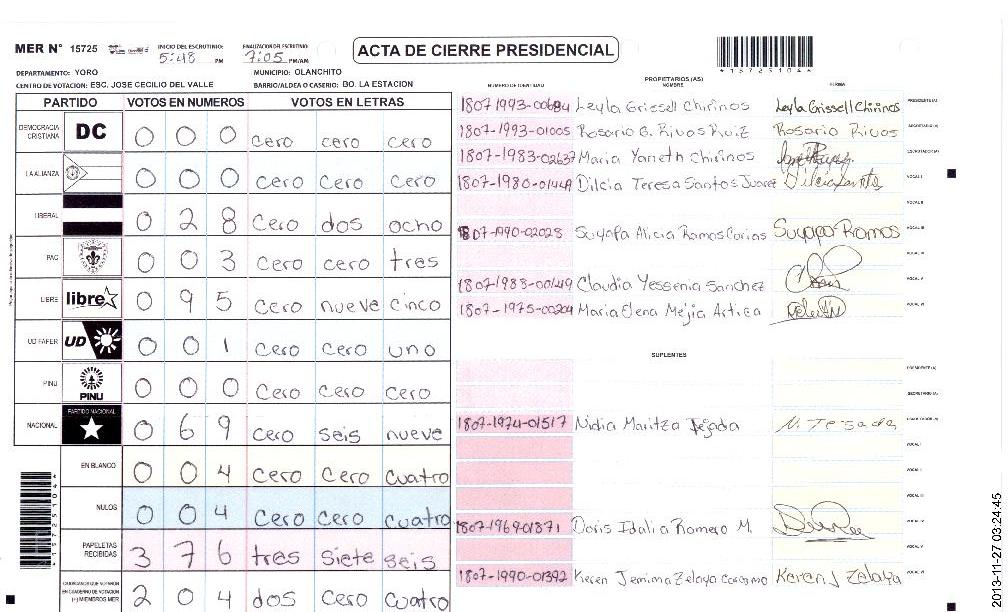 MER N° 15725 INICIO DEL ESCRUTINIO: 5:48 PM FINALIZACION DEL ESCRUTINIO: 7:05 PM/AM ACTA DE CIERRE PRESIDENCIAL
DEPARTAMENTO: YORO MUNICIPIO: OLANCHITO
CENTRO DE VOTACION: ESC. JOSE CECILIO DEL VALLE BARRIO/ALDEA O CASERIO: BO. LA ESTACION
PARTIDO VOTOS EN NUMEROS VOTOS EN LETRAS
DEMOCRACIA CRISTIANA DC 0 0 0 cero cero cero
LA ALIANZA 0 0 0 cero cero cero
LIBERAL 0 2 8 cero dos ocho
PAC 0 0 3 cero cero tres
LIBRE libre 0 9 5 cero nueve cinco
UD FAPER UD 0 0 1 cero cero uno
PINU PINU 0 0 0 cero cero cero
NACIONAL PARTIDO NACIONAL 0 6 9 cero seis nueve
EN BLANCO 0 0 4 cero cero cuatro
NULOS 0 0 4 cero cero cuatro
PAPELETAS RECIBIDAS 3 7 6 tres siete seis
CIUDADANOS QUE VOTARON EN CUADERNO DE VOTACION (+) MIEMBROS MER 2 0 4 dos cero cuatro
PROPIETARIOS (AS)
NUMERO DE IDENTIDAD NOMBRE FIRMA
1807-1993-00684 Leyla Grissell Chirinos Leyla Grissell Chirinos PRESIDENTE (A)
1807-1993-01005 Rosario G. Rivas Ruiz Rosario Rivas SECRETARIO (A)
1807-1983-02637 Maria Yaneth Chirinos ESCRUTADOR (A)
1807-1980-01449 Dilcia Teresa Santos Juarez Dilcia Santos VOCAL I
VOCAL II
1807-1990-02028 Suyapa Alicia Ramos Carias Suyapa Ramos VOCAL III
VOCAL IV
1807-1983-00149 Claudia Yessenia Sanchez VOCAL V
1807-1975-00204 Maria Elena Mejia Artica VOCAL VI
SUPLENTES
PRESIDENTE (A)
SECRETARIO (A)
1807-1974-01517 Nidia Maritza Tejada N. Tejada ESCRUTADOR (A)
VOCAL I
VOCAL II
VOCAL III
1807-1969-01871 Doris Idalia Romero M. VOCAL IV
VOCAL V
1807-1990-01392 Keren Jemima Zelaya Keren J Zelaya VOCAL VI
*15725104*
*15725104*
2013-11-27 03:24:45